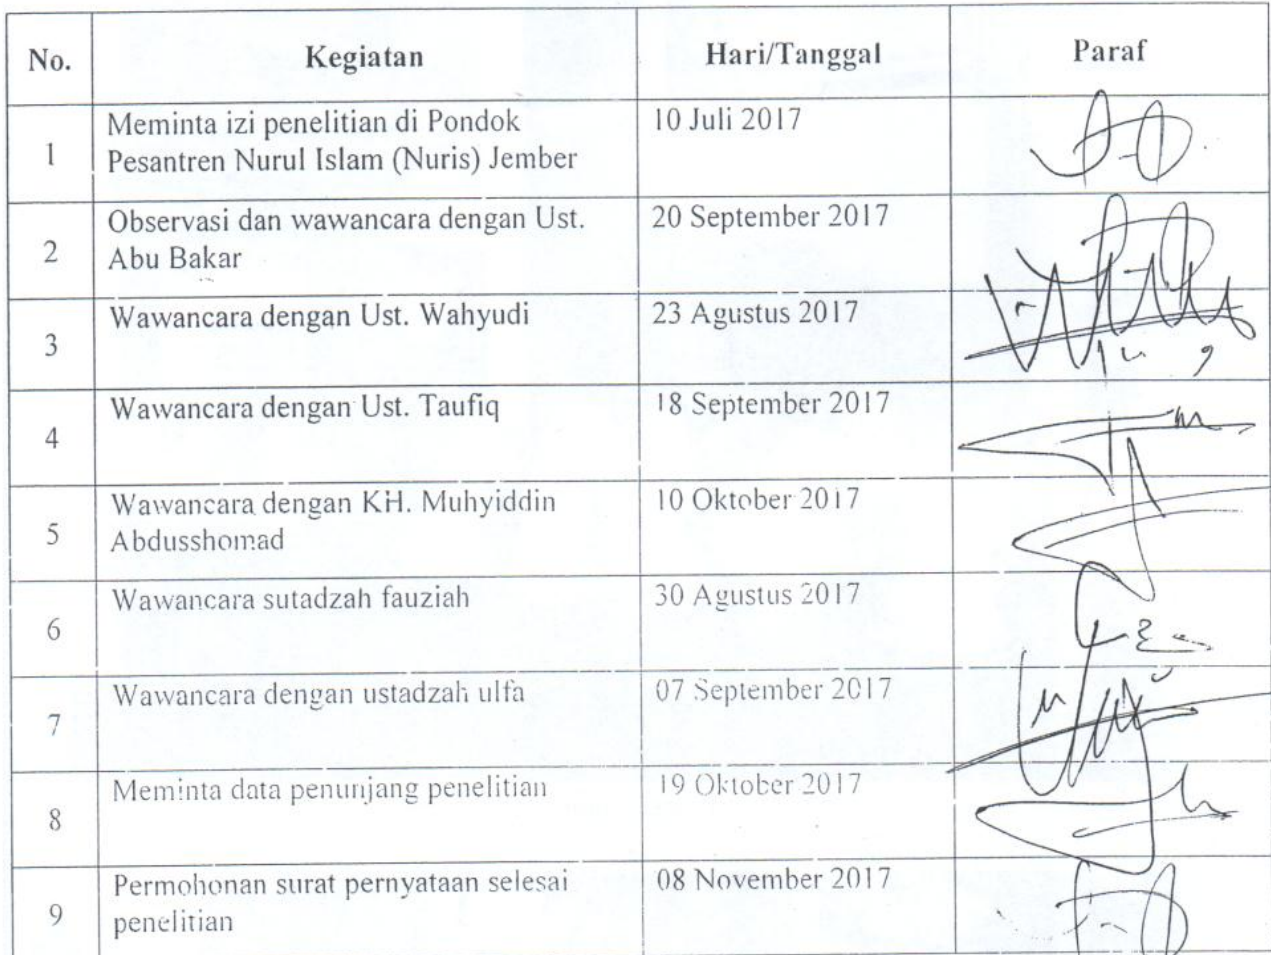 No. Kegiatan Hari/Tanggal Paraf
1 Meminta izi penelitian di Pondok Pesantren Nurul Islam (Nuris) Jember 10 Juli 2017
2 Observasi dan wawancara dengan Ust. Abu Bakar 20 September 2017
3 Wawancara dengan Ust. Wahyudi 23 Agustus 2017
4 Wawancara dengan Ust. Taufiq 18 September 2017
5 Wawancara dengan KH. Muhyiddin Abdusshomad 10 Oktober 2017
6 Wawancara sutadzah fauziah 30 Agustus 2017
7 Wawancara dengan ustadzah ulfa 07 September 2017
8 Meminta data penunjang penelitian 19 Oktober 2017
9 Permohonan surat pernyataan selesai penelitian 08 November 2017